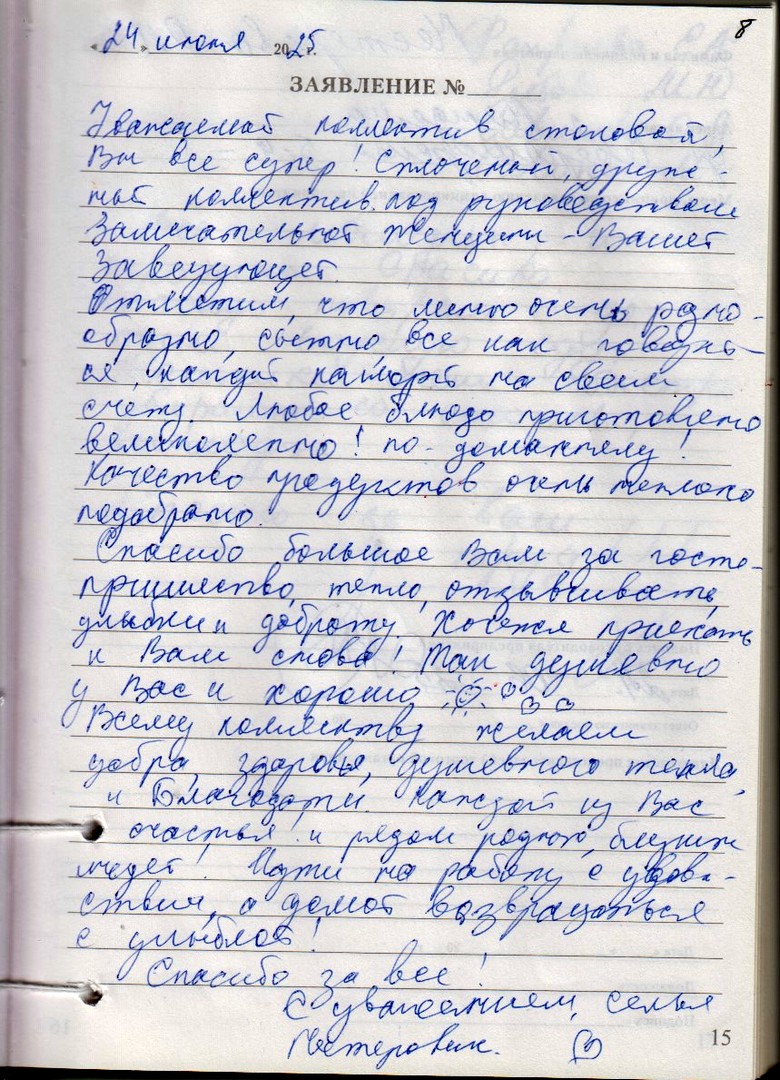 8
«24» июля 2025 г.
ЗАЯВЛЕНИЕ №
Уважаемый коллектив столовой,
Вы все супер! Сплоченный, друж-
ный коллектив под руководством
Замечательной Женщины - Вашей
Заведующей.
Отметим, что меню очень разно-
образно, сытно, все как говорить-
ся, каждый калорий на своем
счету. Любое блюдо приготовлено
великолепно! по-домашнему!
Качество продуктов очень
подобрано.
Спасибо большое Вам за госте-
приимство, тепло, отзывчивость,
улыбки и доброту. Хочется приехать
к Вам снова! Так душевно
у Вас и хорошо
Всему коллективу желаем
добра, здоровья, душевного тепла,
и Благодати. Каждой из Вас
счастья и рядом родных, близких
людей! Идти на работу с удово-
ствием, а домой возвращаться
с улыбкой!
Спасибо за все!
С уважением, семья
Нестерович.
15